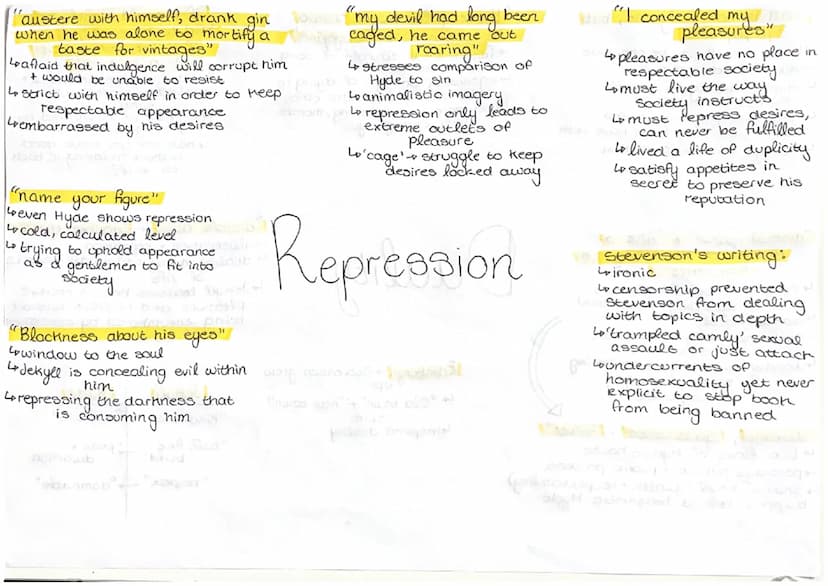 "austere with himself, drank gin
when he was alone to mortify a
taste for vintages"
↳afraid that indulgence will corrupt him
+ would be unable to resist
↳strict with himself in order to keep
respectable appearance
↳embarrassed by his desires
"my devil had long been
caged, he came out
roaring"
↳stresses comparison of
Hyde to sin
↳animalistic imagery
↳repression only leads to
extreme outlets of
pleasure
↳'cage' → struggle to keep
desires locked away
"I concealed my
pleasures"
↳pleasures have no place in
respectable society
↳must live the way
society instructs
↳must repress desires,
can never be fulfilled
↳lived a life of duplicity
↳satisfy appetites in
secret to preserve his
reputation
"name your figure"
↳even Hyde shows repression
↳cold, calculated level
↳trying to uphold appearance
as a gentlemen to fit into
society
Repression
Stevenson's writing:
↳ironic
↳censorship prevented
Stevenson from dealing
with topics in depth
↳'trampled camly' sexual
assault or just attack
↳undercurrents of
homosexuality yet never
explicit to stop book
from being banned
"Blackness about his eyes"
↳window to the soul
↳Jekyll is concealing evil within
him
↳repressing the darkness that
is consuming him